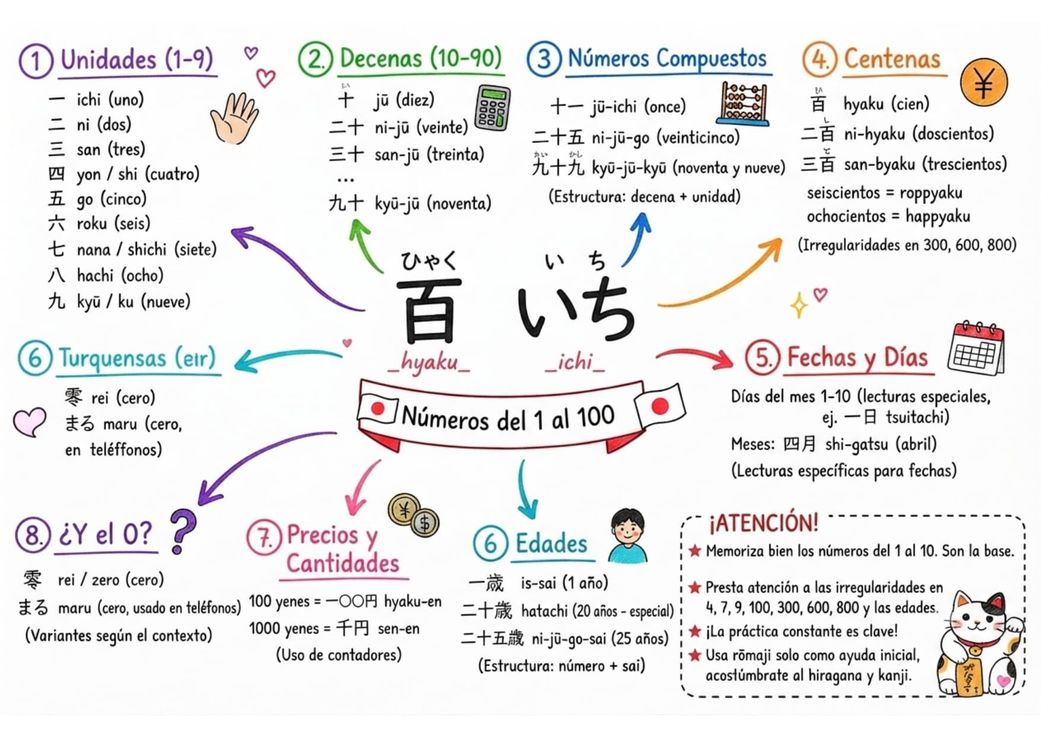 1 Unidades (1-9)
一 ichi (uno)
二 ni (dos)
三 san (tres)
四 yon / shi (cuatro)
五 go (cinco)
六 roku (seis)
七 nana / shichi (siete)
八 hachi (ocho)
九 kyū / ku (nueve)
2. Decenas (10-90)
十 jū (diez)
二十 ni-jū (veinte)
三十 san-jū (treinta)
...
九十 kyū-jū (noventa)
3 Números Compuestos
十一 jū-ichi (once)
二十五 ni-jū-go (veinticinco)
九十九 kyū-jū-kyū (noventa y nueve)
(Estructura: decena + unidad)
4. Centenas
¥
百 hyaku (cien)
二百 ni-hyaku (doscientos)
三百 san-byaku (trescientos)
seiscientos = roppyaku
ochocientos = happyaku
(Irregularidades en 300, 600, 800)
ひゃく い ち
百 いち
_hyaku_ _ichi_
Números del 1 al 100
6 Turquensas (eır)
零 rei (cero)
まる maru (cero,
en teléffonos)
5. Fechas y Días
Días del mes 1-10 (lecturas especiales,
ej. 一日 tsuitachi)
Meses: 四月 shi-gatsu (abril)
(Lecturas específicas para fechas)
8. ¿Y el 0? ?
零 rei / zero (cero)
まる maru (cero, usado en teléfonos)
(Variantes según el contexto)
7. Precios y
Cantidades
¥ $
100 yenes = 一〇〇円 hyaku-en
1000 yenes = 千円 sen-en
(Uso de contadores)
6 Edades
一歳 is-sai (1 año)
二十歳 hatachi (20 años – especial)
二十五歳 ni-jū-go-sai (25 años)
(Estructura: número + sai)
¡ATENCIÓN!
★ Memoriza bien los números del 1 al 10. Son la base.
★ Presta atención a las irregularidades en
4, 7, 9, 100, 300, 600, 800 y las edades.
★ ¡La práctica constante es clave!
★ Usa rōmaji solo como ayuda inicial,
acostúmbrate al hiragana y kanji.